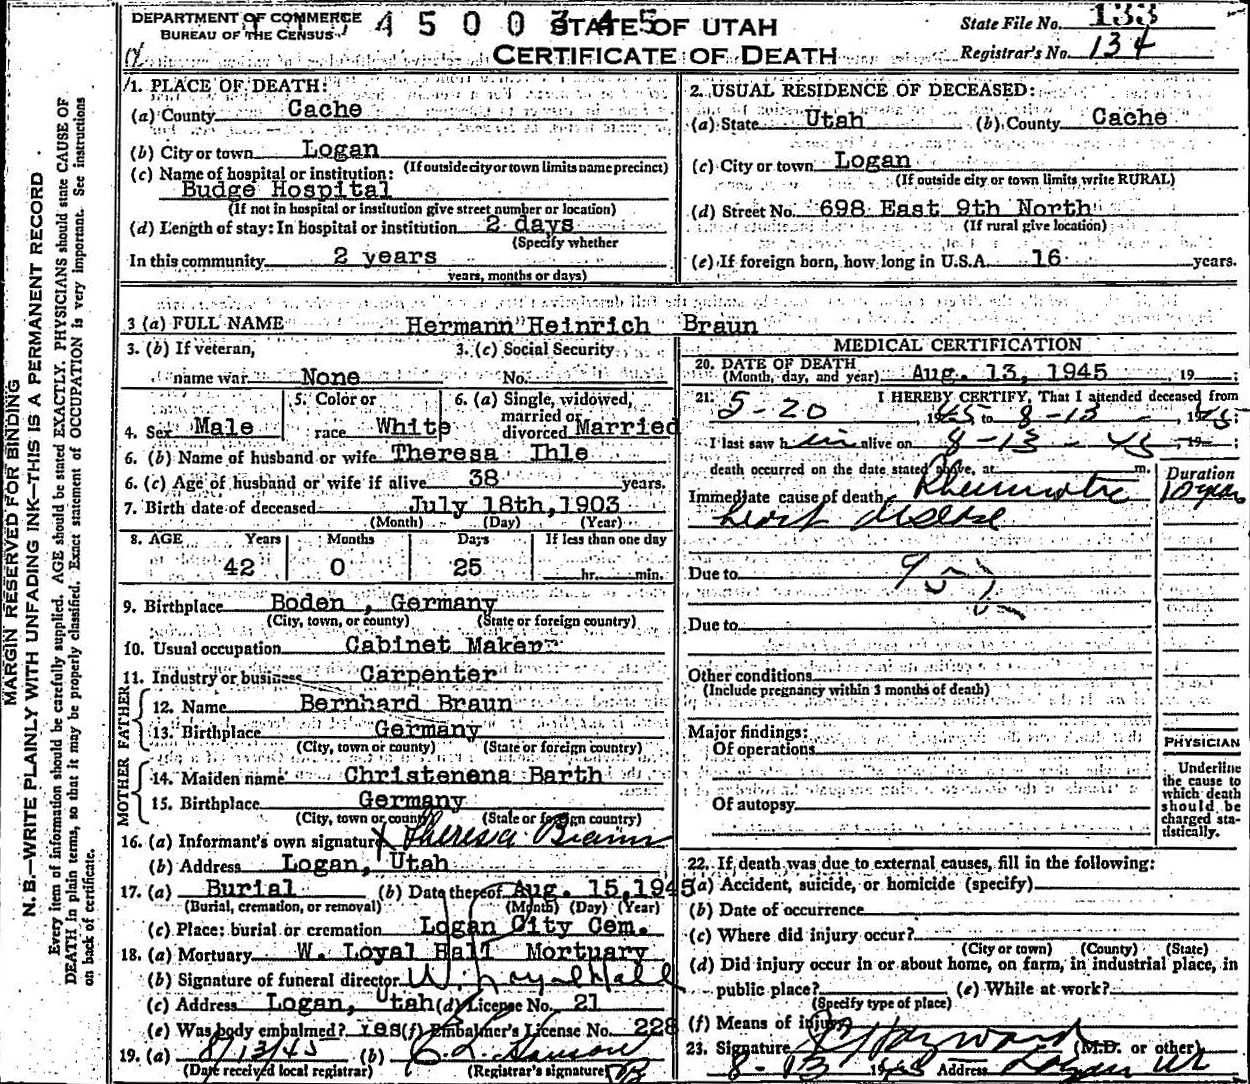 DEPARTMENT OF COMMERCE
BUREAU OF THE CENSUS
4500345
STATE OF UTAH
CERTIFICATE OF DEATH
State File No. 133
Registrar's No. 134
MARGIN RESERVED FOR BINDING
N. B.—WRITE PLAINLY WITH UNFADING INK—THIS IS A PERMANENT RECORD
Every item of information should be carefully supplied. AGE should be stated EXACTLY. PHYSICIANS should state CAUSE OF
DEATH in plain terms, so that it may be properly classified. Exact statement of OCCUPATION is very important. See instructions
on back of certificate.
1. PLACE OF DEATH:
(a) County Cache
(b) City or town Logan
(If outside city or town limits name precinct)
(c) Name of hospital or institution:
Budge Hospital
(If not in hospital or institution give street number or location)
(d) Length of stay: In hospital or institution 2 days
(Specify whether
In this community 2 years
years, months or days)
2. USUAL RESIDENCE OF DECEASED:
(a) State Utah (b) County Cache
(c) City or town Logan
(If outside city or town limits write RURAL)
(d) Street No. 698 East 9th North
(If rural give location)
(e) If foreign born, how long in U.S.A. 16 years.
3 (a) FULL NAME Hermann Heinrich Braun
3. (b) If veteran,
name war None
3. (c) Social Security
No.
4. Sex Male
5. Color or
race White
6. (a) Single, widowed,
married or
divorced Married
6. (b) Name of husband or wife Theresa Ihle
6. (c) Age of husband or wife if alive 38 years.
7. Birth date of deceased July 18th, 1903
(Month) (Day) (Year)
8. AGE Years Months Days If less than one day
42 0 25 hr. min.
9. Birthplace Boden, Germany
(City, town, or county) (State or foreign country)
10. Usual occupation Cabinet Maker
11. Industry or business Carpenter
FATHER
12. Name Bernhard Braun
13. Birthplace Germany
(City, town or county) (State or foreign country)
MOTHER
14. Maiden name Christenena Barth
15. Birthplace Germany
(City, town or county) (State or foreign country)
16. (a) Informant's own signature x Theresa Braun
(b) Address Logan, Utah
17. (a) Burial (b) Date thereof Aug. 15, 1945
(Burial, cremation, or removal) (Month) (Day) (Year)
(c) Place: burial or cremation Logan City Cem.
18. (a) Mortuary W. Loyal Hall Mortuary
(b) Signature of funeral director W. Loyal Hall
(c) Address Logan, Utah (d) License No. 21
(e) Was body embalmed? Yes (f) Embalmer's License No. 228
19. (a) 8/13/45 (b)
(Date received local registrar) (Registrar's signature)
MEDICAL CERTIFICATION
20. DATE OF DEATH
(Month, day, and year) Aug. 13, 1945, 19 ;
21. I HEREBY CERTIFY, That I attended deceased from
5-20, 1945 to 8-13-, 1945
I last saw him alive on 8-13-45, 19 ;
death occurred on the date stated above, at m.
Duration
Immediate cause of death Rheumatic 10 year
heart disease
Due to
95
Due to
Other conditions
(Include pregnancy within 3 months of death)
Major findings:
Of operations
Of autopsy
PHYSICIAN
Underline
the cause to
which death
should be
charged sta-
tistically.
22. If death was due to external causes, fill in the following:
(a) Accident, suicide, or homicide (specify)
(b) Date of occurrence
(c) Where did injury occur?
(City or town) (County) (State)
(d) Did injury occur in or about home, on farm, in industrial place, in
public place? (e) While at work?
(Specify type of place)
(f) Means of injury
23. Signature Hayward (M.D. or other)
8-13 1945 Address Logan Ut